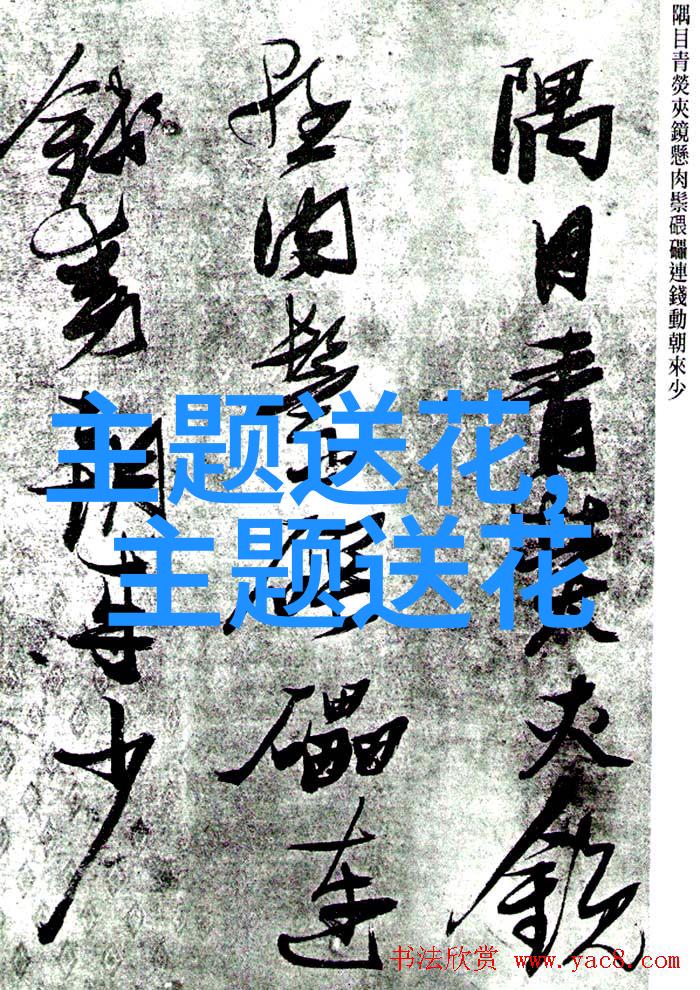 隅目青熒夾鏡懸肉鬃碨礧連錢動朝來少
隅目青熒夾鏡
懸肉鬃碨礧連
錢動朝來少
主题送花,
主题送花
书法欣赏 www.yac8.com